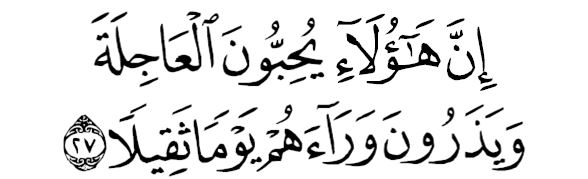 إِنَّ هَٰٓؤُلَآءِ يُحِبُّونَ ٱلْعَاجِلَةَ
وَيَذَرُونَ وَرَآءَهُمْ يَوْمًا ثَقِيلًا ٢٧